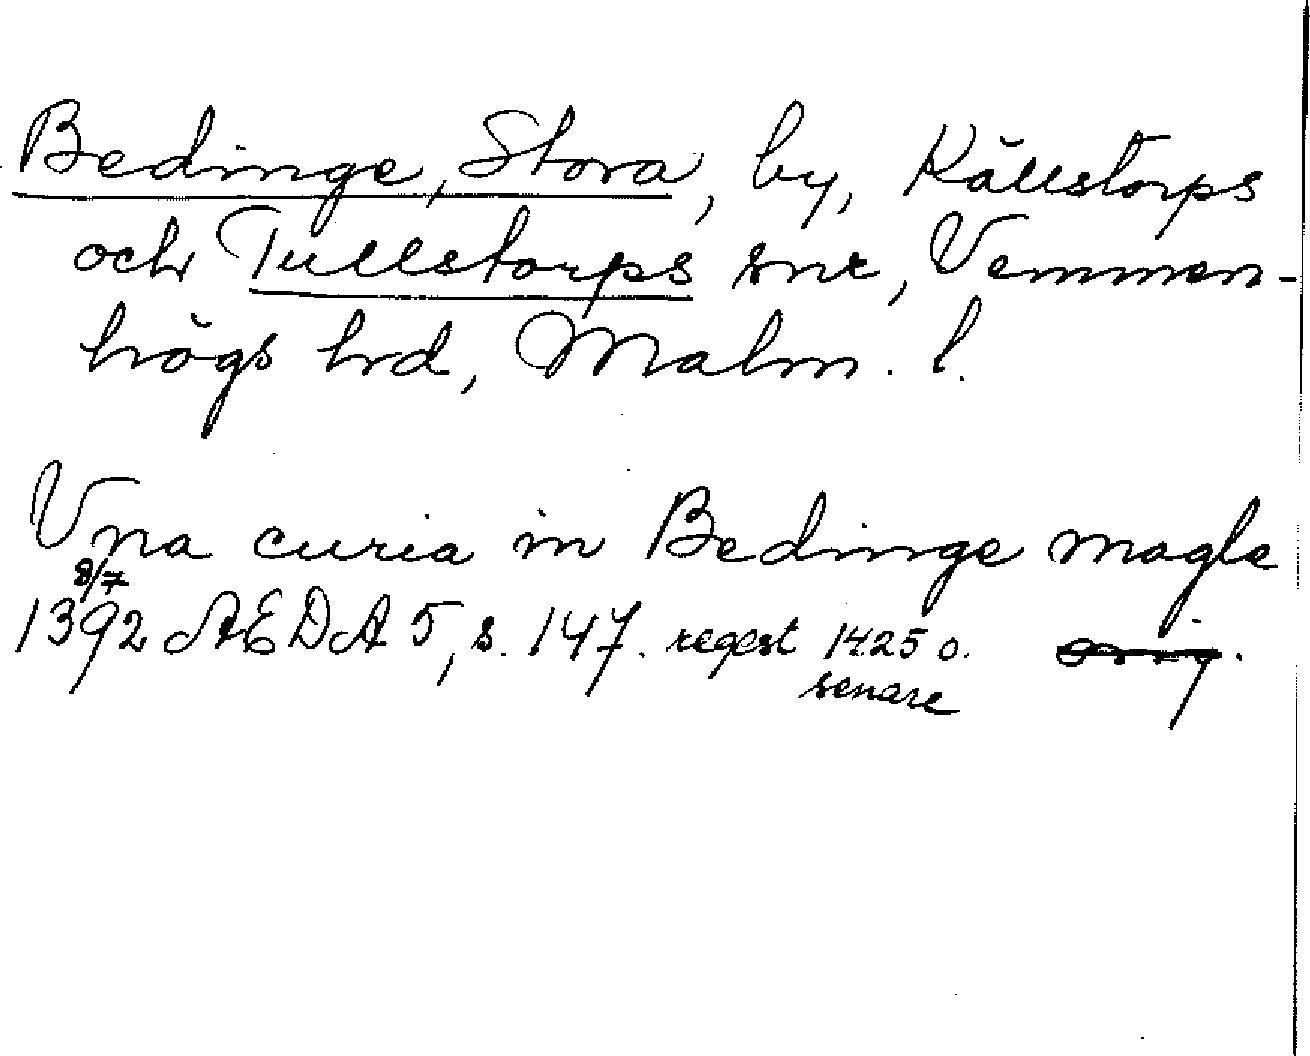 Bedinge, Stora, by, Källstorps
och Tullstorps snr, Vemmen-
högs hrd, Malm. l.
Vna curia in Bedinge magle
8/7
1392 AEDA 5, s. 147. regest 1425 o. orig.
senare